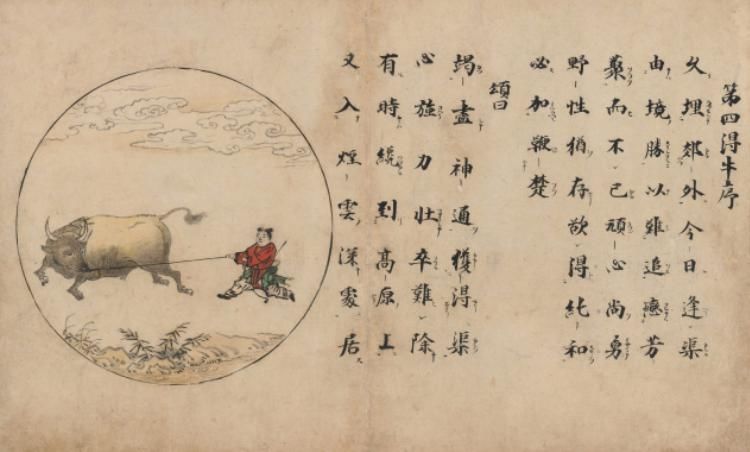 第四得牛序
久埋郊外今日逢渠
由境勝以難追戀芳
叢而不已頑心尚勇
野性猶存欲得純和
必加鞭楚
頌曰
竭盡神通獲得渠
心強力壯卒難除
有時纔到高原上
又入煙雲深處居